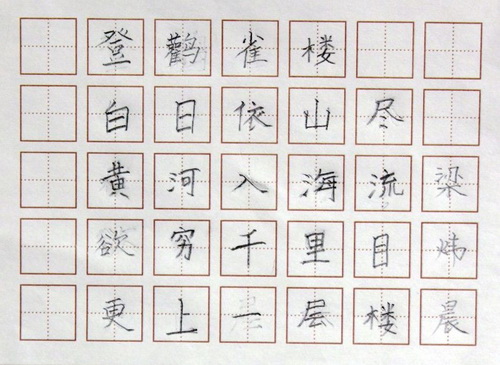 登鹳雀楼
白日依山尽
黄河入海流
欲穷千里目
更上一层楼
梁炜晨